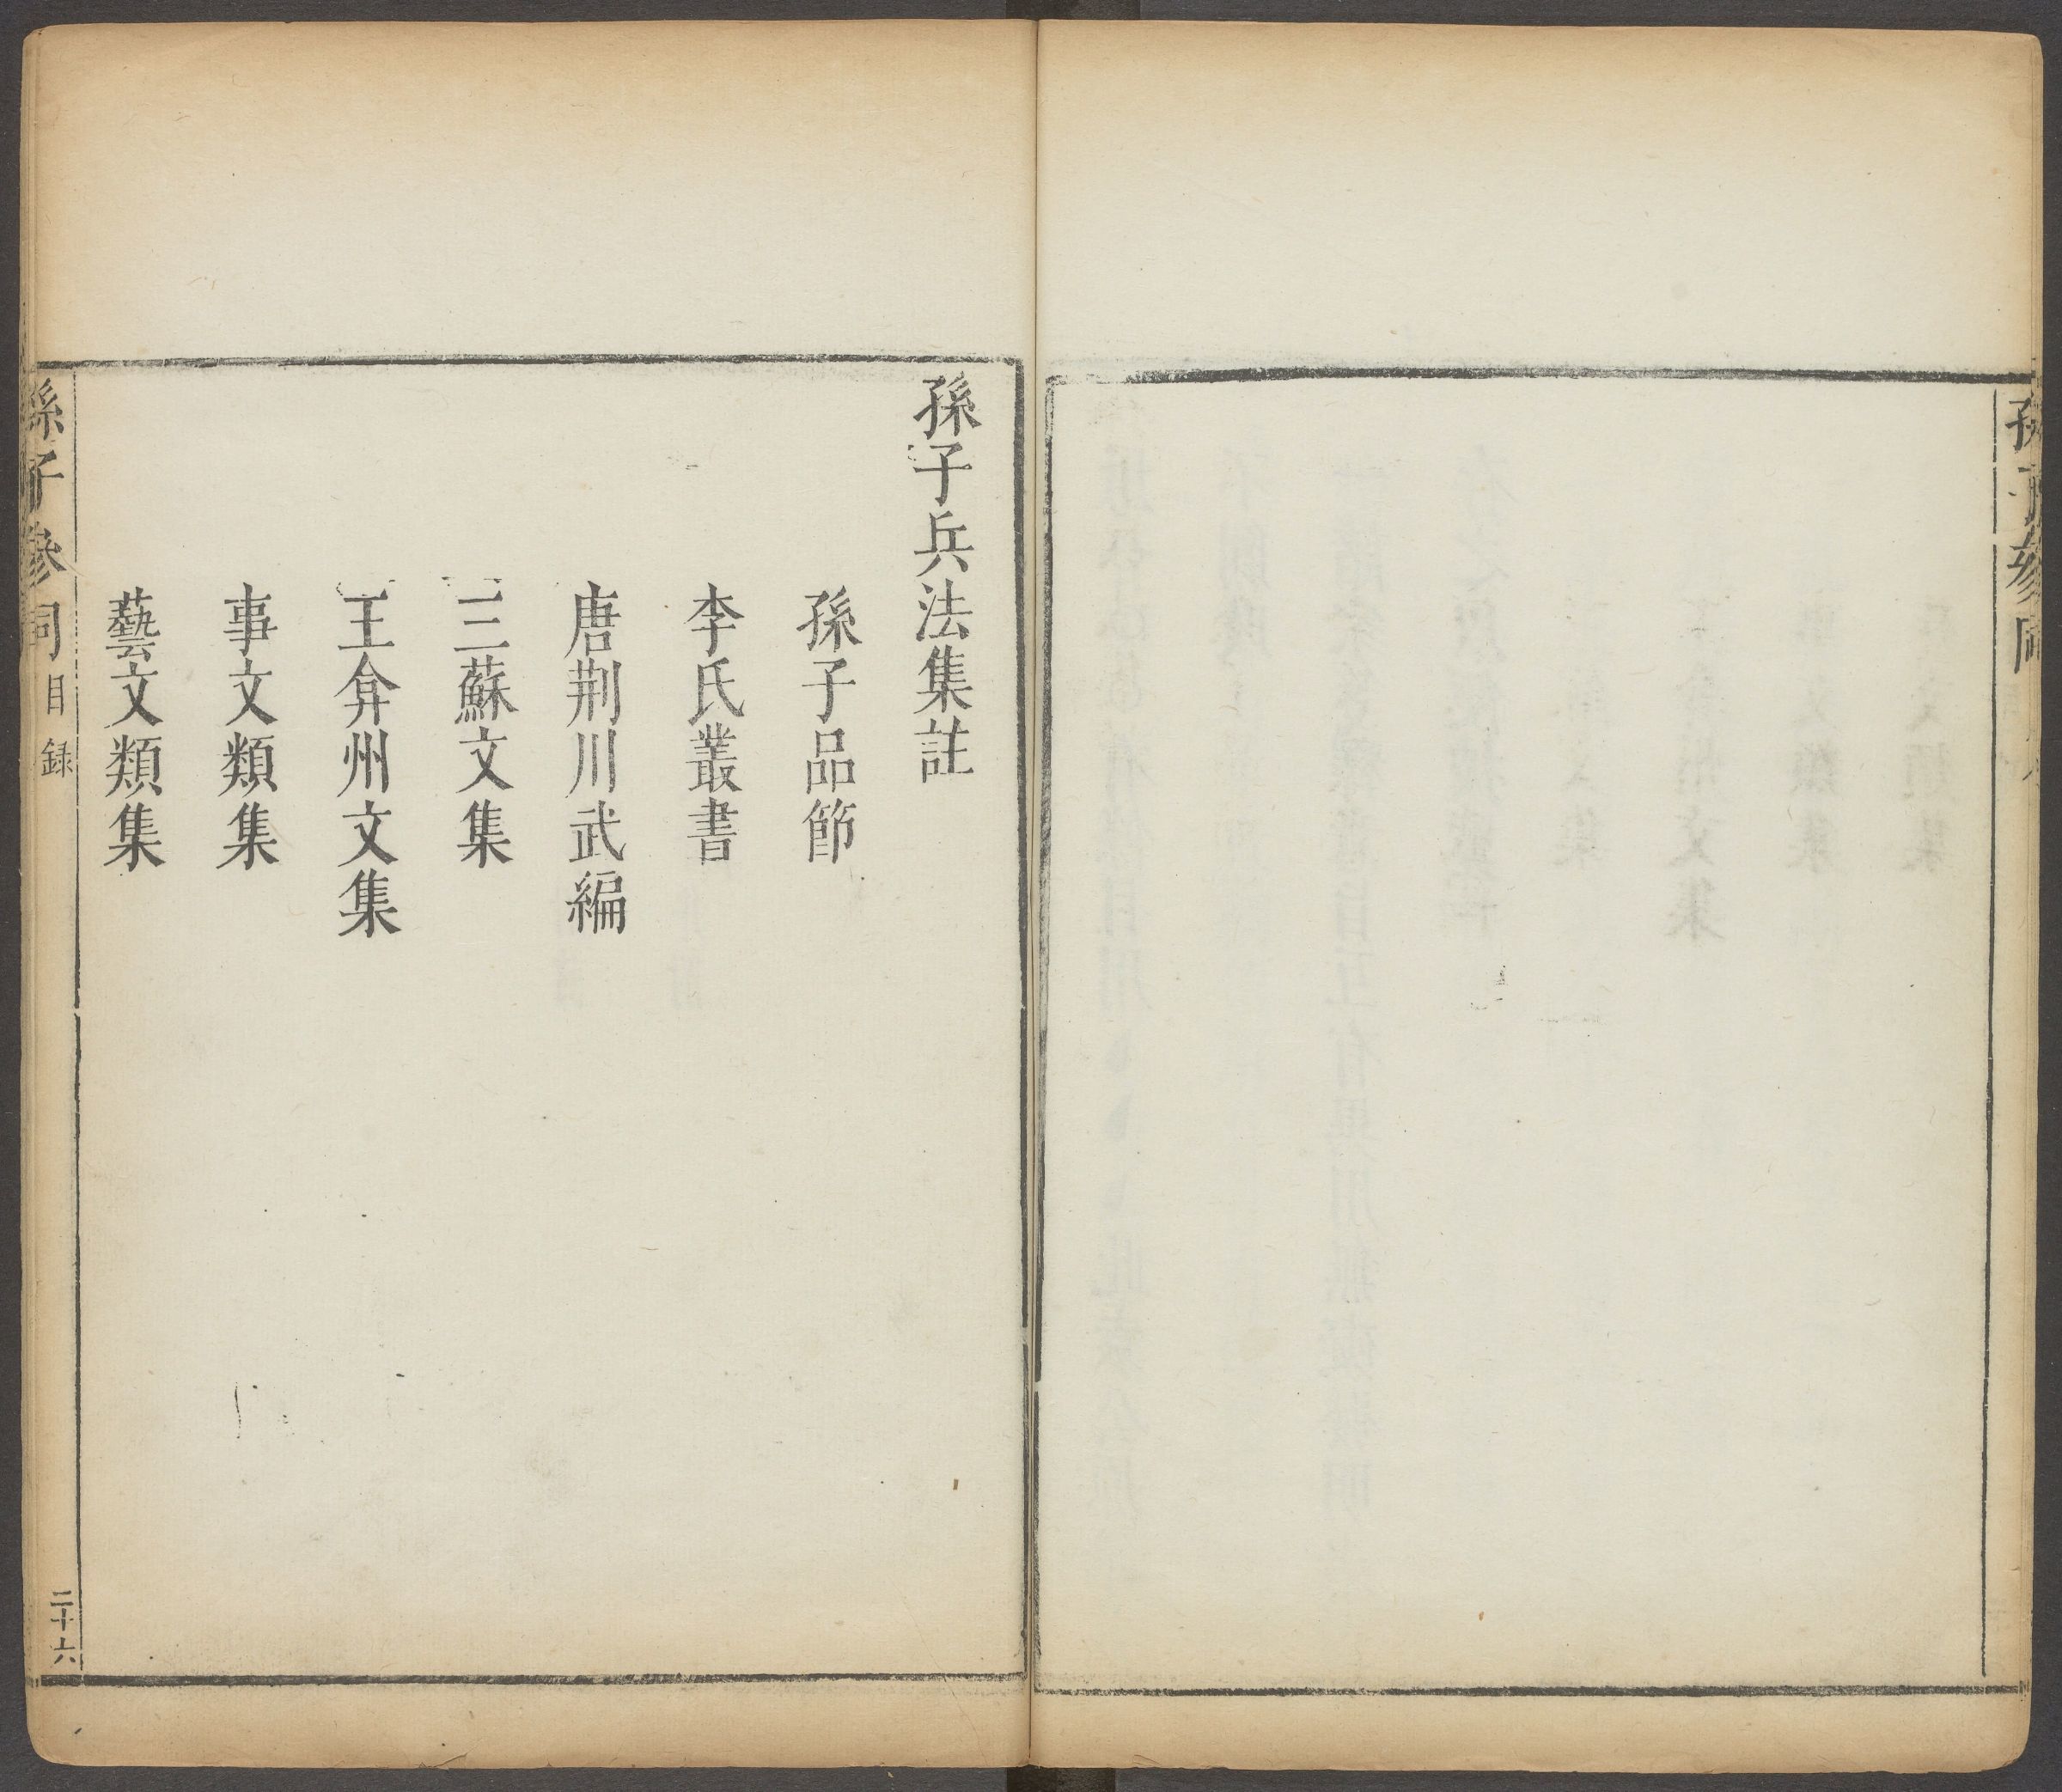 孫子參同
孫子兵法集註
孫子品節
李氏叢書
唐荆川武編
三蘇文集
王弇州文集
事文類集
藝文類集
孫子參同 目録 二十六